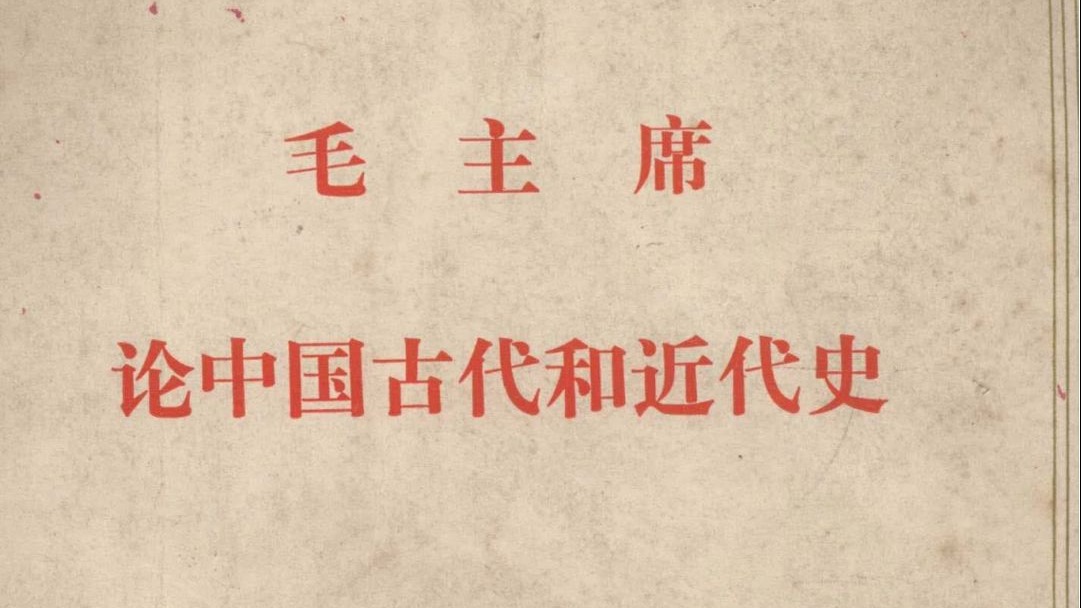 毛主席
论中国古代和近代史